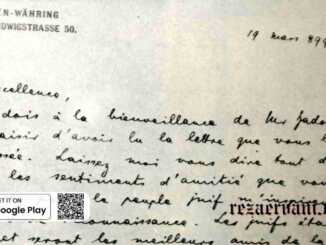 EN-WÄHRING
DWIGSTRASSE 50.
19 mars 1899
cellence,
dois à la bienveillance de Mr Jado
aisir d'avoir lu la lettre que vous
sée. Laissez moi vous dire tout d
les sentiments d'amitié que vou
le peuple juif
rezaervani.com
onnaissance. Les juifs éta
et seront les meilleurs amis de
ET IT ON
oogle Play